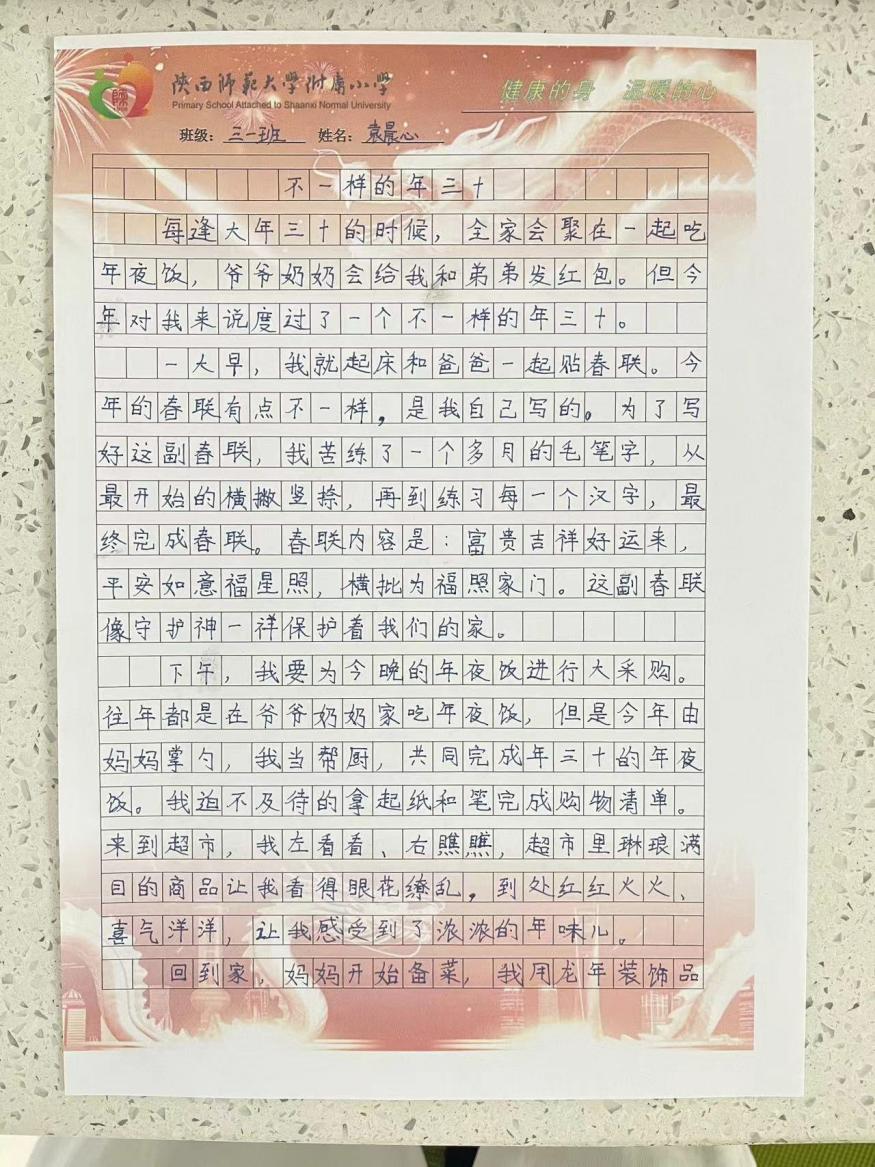 陕西师范大学附属小学
Primary School Attached to Shaanxi Normal University
健康的身 温暖的心
班级：三一班 姓名：袁晨心
不一样的年三十
每逢大年三十的时候，全家会聚在一起吃
年夜饭，爷爷奶奶会给我和弟弟发红包。但今
年对我来说度过了一个不一样的年三十。
一大早，我就起床和爸爸一起贴春联。今
年的春联有点不一样，是我自己写的。为了写
好这副春联，我苦练了一个多月的毛笔字，从
最开始的横撇竖捺，再到练习每一个汉字，最
终完成春联。春联内容是：富贵吉祥好运来，
平安如意福星照，横批为福照家门。这副春联
像守护神一祥保护着我们的家。
下午，我要为今晚的年夜饭进行大采购。
往年都是在爷爷奶奶家吃年夜饭，但是今年由
妈妈掌勺，我当帮厨，共同完成年三十的年夜
饭。我迫不及待的拿起纸和笔完成购物清单。
来到超市，我左看看、右瞧瞧，超市里琳琅满
目的商品让我看得眼花缭乱，到处红红火火、
喜气洋洋，让我感受到了浓浓的年味儿。
回到家，妈妈开始备菜，我用龙年装饰品